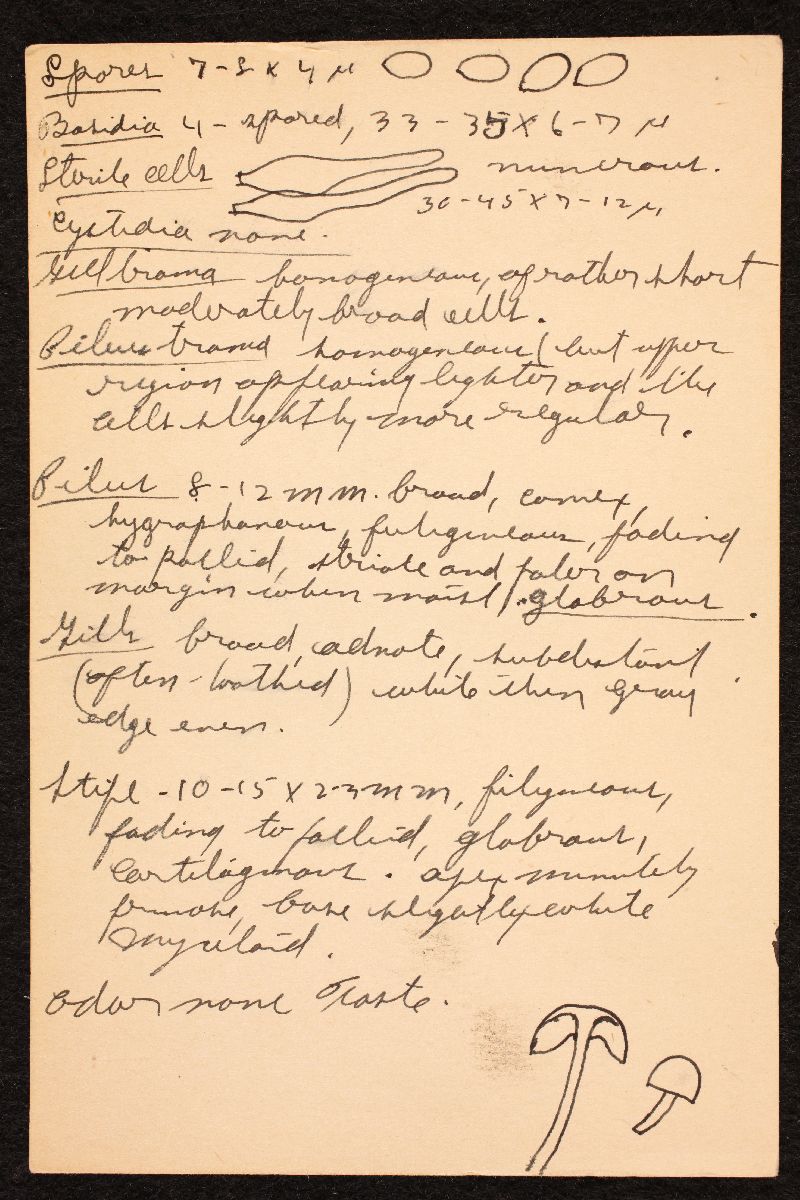 Spores 7-8 x 4 µ
Basidia 4-spored, 33-35 x 6-7 µ
Sterile cells numerous.
30-45 x 7-12 µ,
Cystidia none.
Gill trama homogeneous, of rather short
moderately broad cells.
Pileus trama homogeneous (but upper
region appearing lighter and the
cells slightly more regular.
Pileus 8-12 mm. broad, convex,
hygrophanous, fuligineous, fading
to pallid, striate and paler on
margin when moist, glabrous.
Gills broad, adnate, subdistant
(often toothed) white then gray
edge even.
Stipe -10-15 x 2-3 mm, filigneous,
fading to pallid, glabrous,
cartilaginous. apex minutely
pruinose, base slightly white
myceloid.
Odor none Taste.